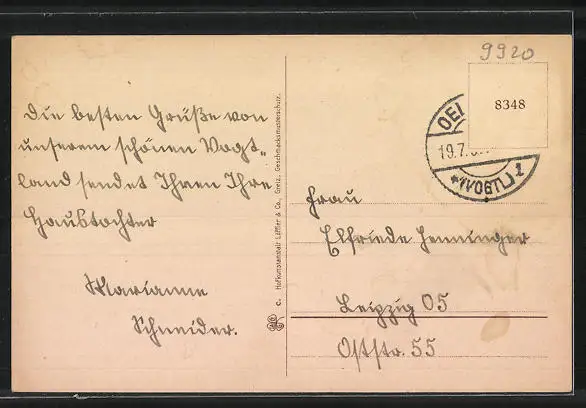 9920
8348
OEL
19.7.
*(VOGTL.) 1
Die besten Grüße von
unserem schönen Vogt-
land sendet Ihnen Ihre
Haustochter
Marianne
Schneider.
C. Hofkunstanstalt Löffler & Co., Greiz. Geschmacksmusterschutz.
Frau
Elfriede Henninger
Leipzig O5
Oststr. 55